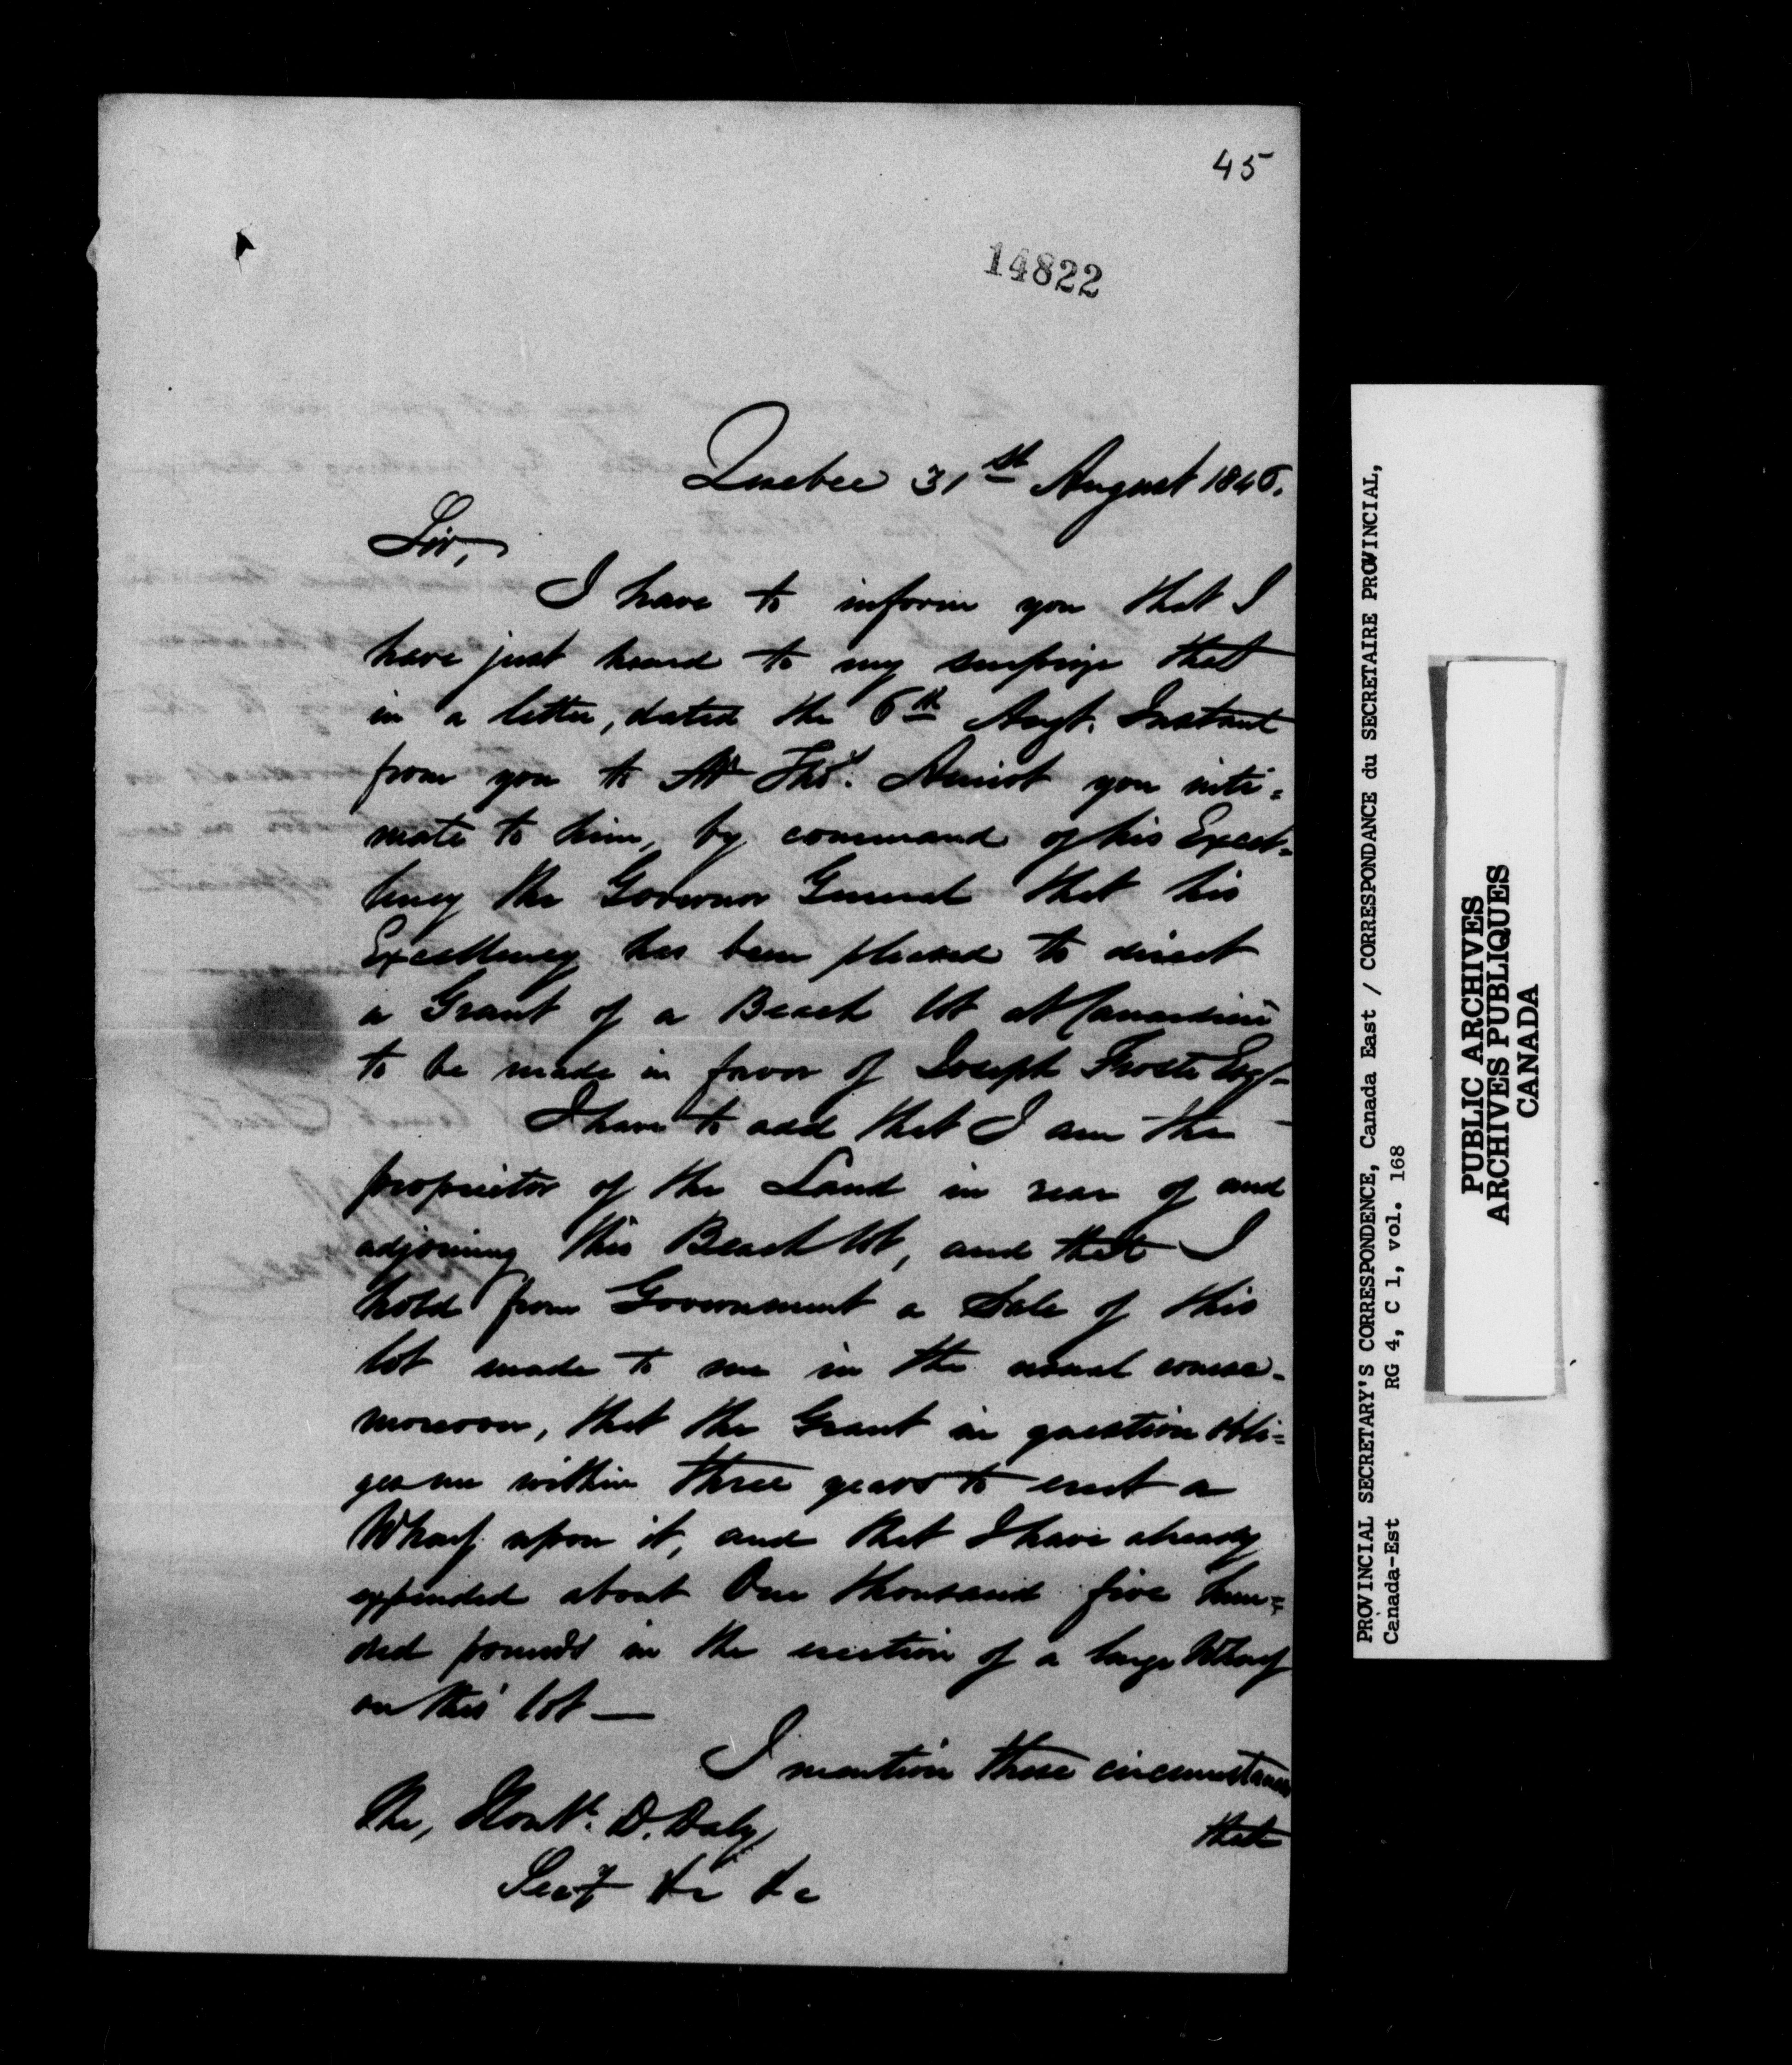 45
14822
Quebec 31st August 1846.
Sir,
I have to inform you that I
have just heard to my surprize that
in a letter, dated the 6th Augt. Instant
from you to Mr Ths. Amiot you inti=
mate to him, by command of his Excel=
lency the Governor General that his
Excellency has been pleased to direct
a Grant of a Beach lot at
to be made in favor of Joseph Frost Esq.
I have to add that I am the
proprietor of the Land in rear of and
adjoining this Beach lot, and that I
hold from Government a Sale of this
lot made to me in the usual course.
moreover, that the Grant in question obli=
ges me within three years to erect a
Wharf upon it, and that I have already
expended about One thousand five hun=
dred pounds in the erection of a large Wharf
on this lot —
I mention these circumstances
that
The, Honble. D. Daly
Secy &c &c
PROVINCIAL SECRETARY'S CORRESPONDENCE, Canada East / CORRESPONDANCE du SECRETAIRE PROVINCIAL,
Canada-Est RG 4, C 1, vol. 168
PUBLIC ARCHIVES
ARCHIVES PUBLIQUES
CANADA